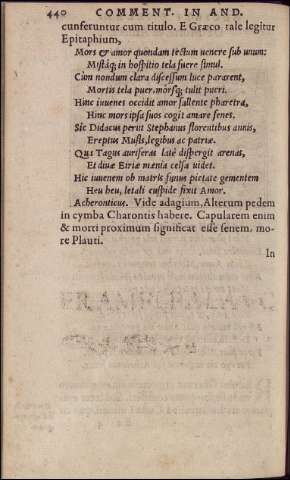 440 COMMENT. IN AND.
cunferuntur cum titulo. E Græco tale legitur
Epitaphium,
Mors & amor quondam tectum uenere sub unum:
Mistáq; in hospitio tela fuere simul.
Cùm nondum clara discessum luce pararent,
Mortis tela puer, morsq; tulit pueri.
Hinc iuuenes occidit amor fallente pharetra,
Hinc mors ipsa suos cogit amare senes.
Sic Didacus perijt Stephanus florentibus annis,
Ereptus Musis, legibus ac patriæ.
Qui Tagus auriferas latè dispergit arenas,
Et diuæ Etriæ mœnia celsa uidet.
Hic iuuenem ob matris funus pietate gementem
Heu heu, letali cuspide fixit Amor.
Acheronticus. Vide adagium, Alterum pedem
in cymba Charontis habere. Capularem enim
& morti proximum significat esse senem. mo-
re Plauti.
In